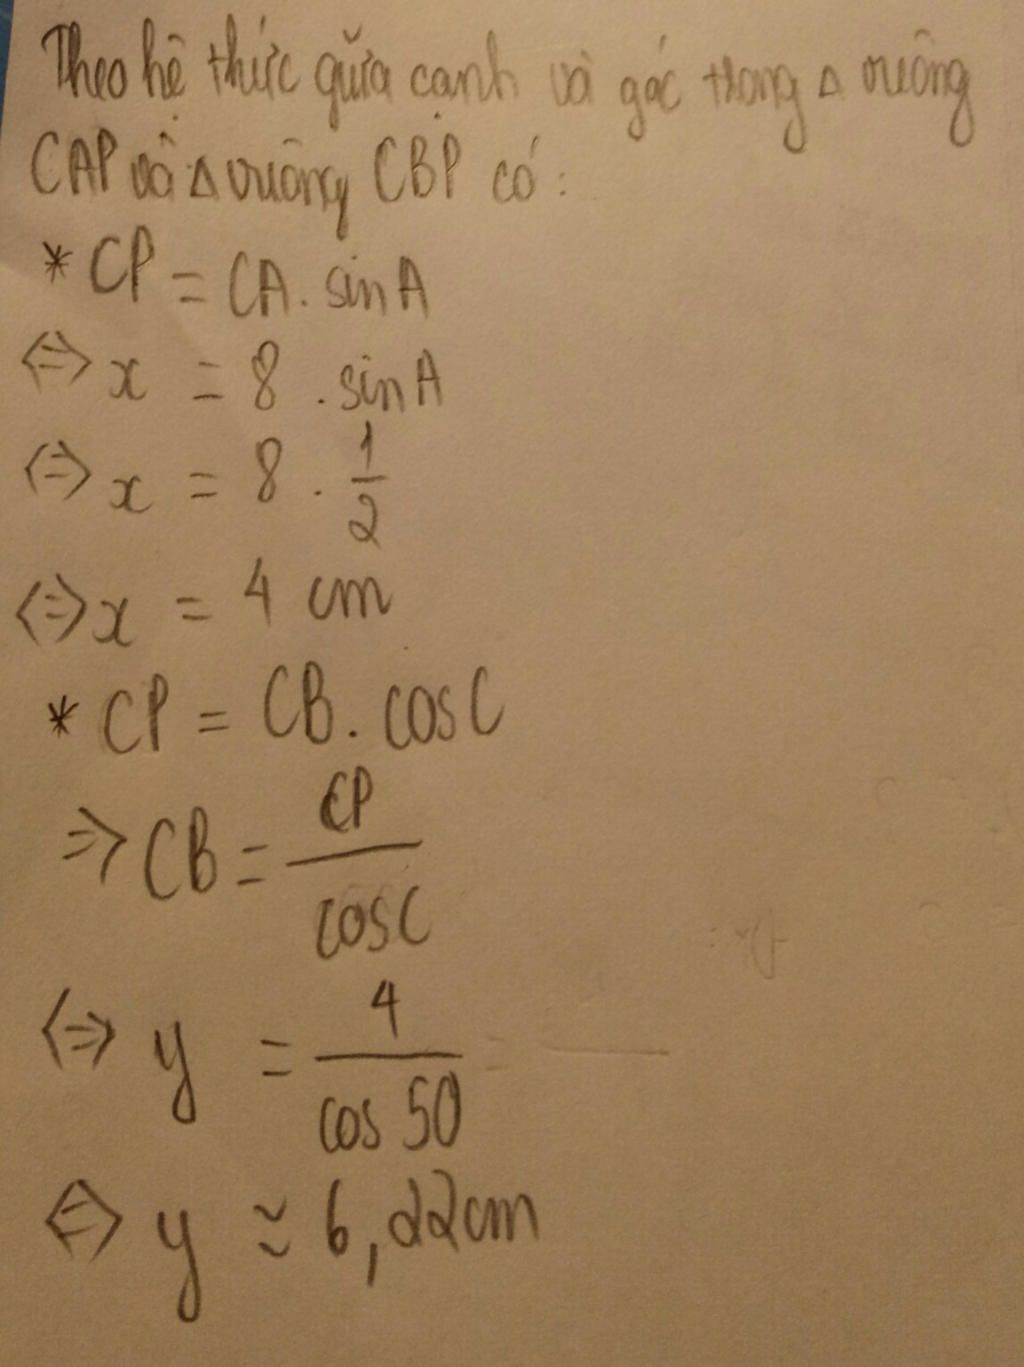 Theo hệ thức giữa cạnh và góc trong Δ vuông
CAP và Δ vuông CBP có:
* CP = CA. sin A
⇔ x = 8 . sin A
⇔ x = 8 . 1/2
⇔ x = 4 cm
* CP = CB. cos C
⇒ CB = CP/cos C
⇔ y = 4/cos 50
⇔ y ≈ 6,22cm